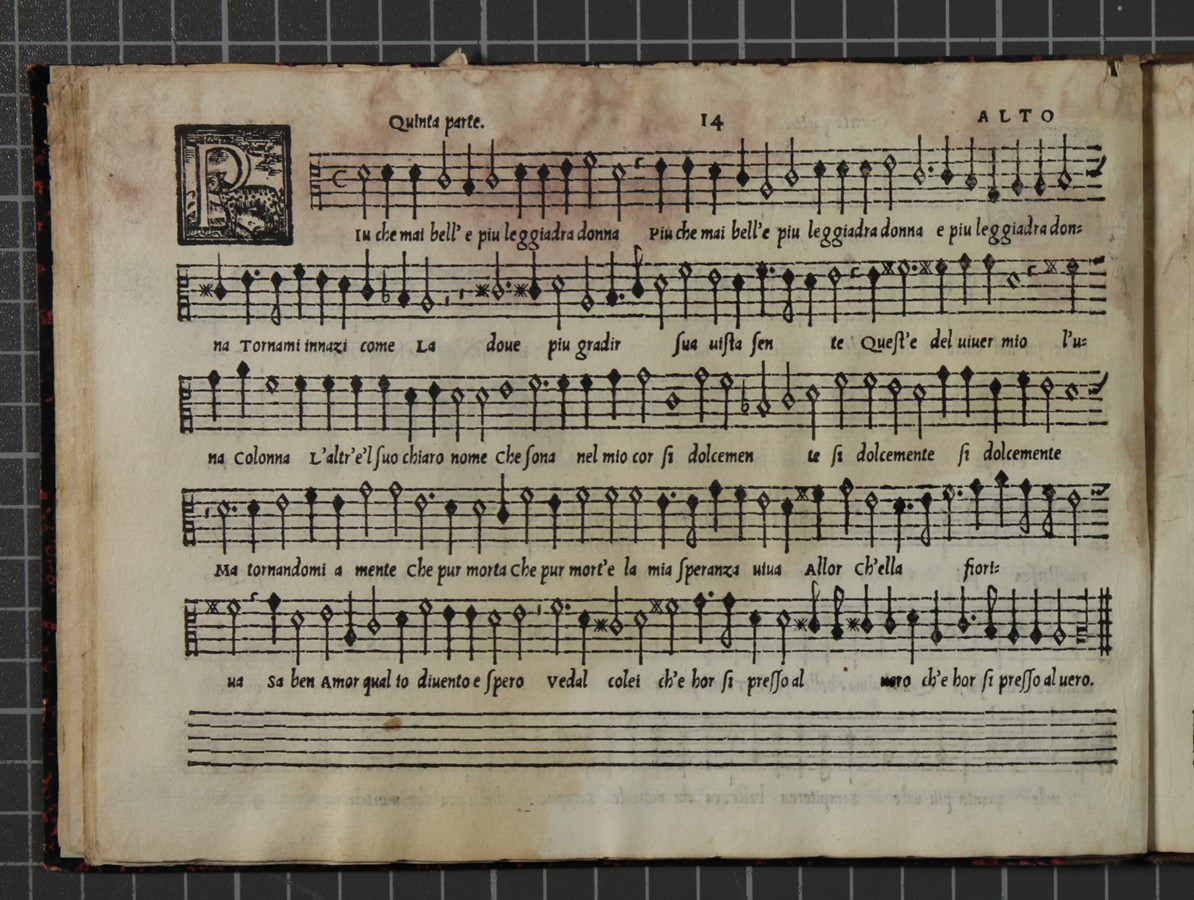 Quinta parte. 14 ALTO
PIu che mai bell' e piu leggiadra donna Piu che mai bell'e piu leggiadra donna e piu leggiadra don=
na Tornami innazi come La doue piu gradir sua uista sen te Quest'e del uiuer mio l'u=
na Colonna L'altr'e'l suo chiaro nome Che sona nel mio cor si dolcemen te si dolcemente si dolcemente
Ma tornandomi a mente Che pur morta Che pur mort'e la mia speranza uiua Allor ch'ella fiori=
ua Sa ben Amor qual io diuento e spero Vedal colei ch'e hor si presso al uero ch'e hor si presso al uero.